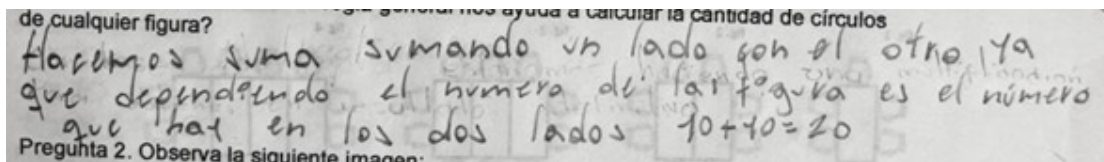 regla general nos ayuda a calcular la cantidad de círculos
de cualquier figura?
Hacemos suma sumando un lado con el otro, ya
que dependiendo el numero de la figura es el número
que hay en los dos lados 10+10=20
Pregunta 2. Observa la siguiente imagen: